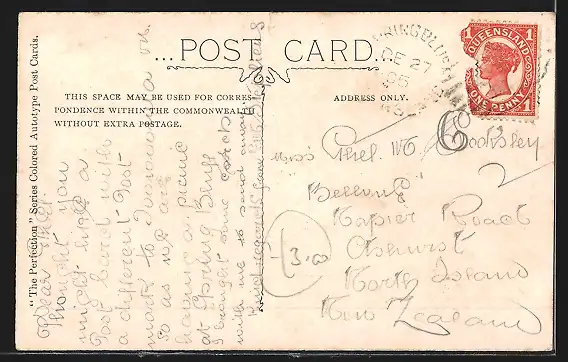 "The Perfection" Series Colored Autotype Post Cards.
...POST CARD...
THIS SPACE MAY BE USED FOR CORRES-
PONDENCE WITHIN THE COMMONWEALTH
WITHOUT EXTRA POSTAGE.
ADDRESS ONLY.
SPRINGBLUFF
DE 27
QUEENSLAND
1 1
ONE PENNY
Dear
Thought you
might like a
Post Card with
a different Post
mark to Toowoomba
so as we are
having a picnic
at Spring Bluff
I brought some cards
with me to send
Kind regards
Miss Ethel M Cooksley
Bellevue
Napier Road
Ashurst
North Island
New Zealand